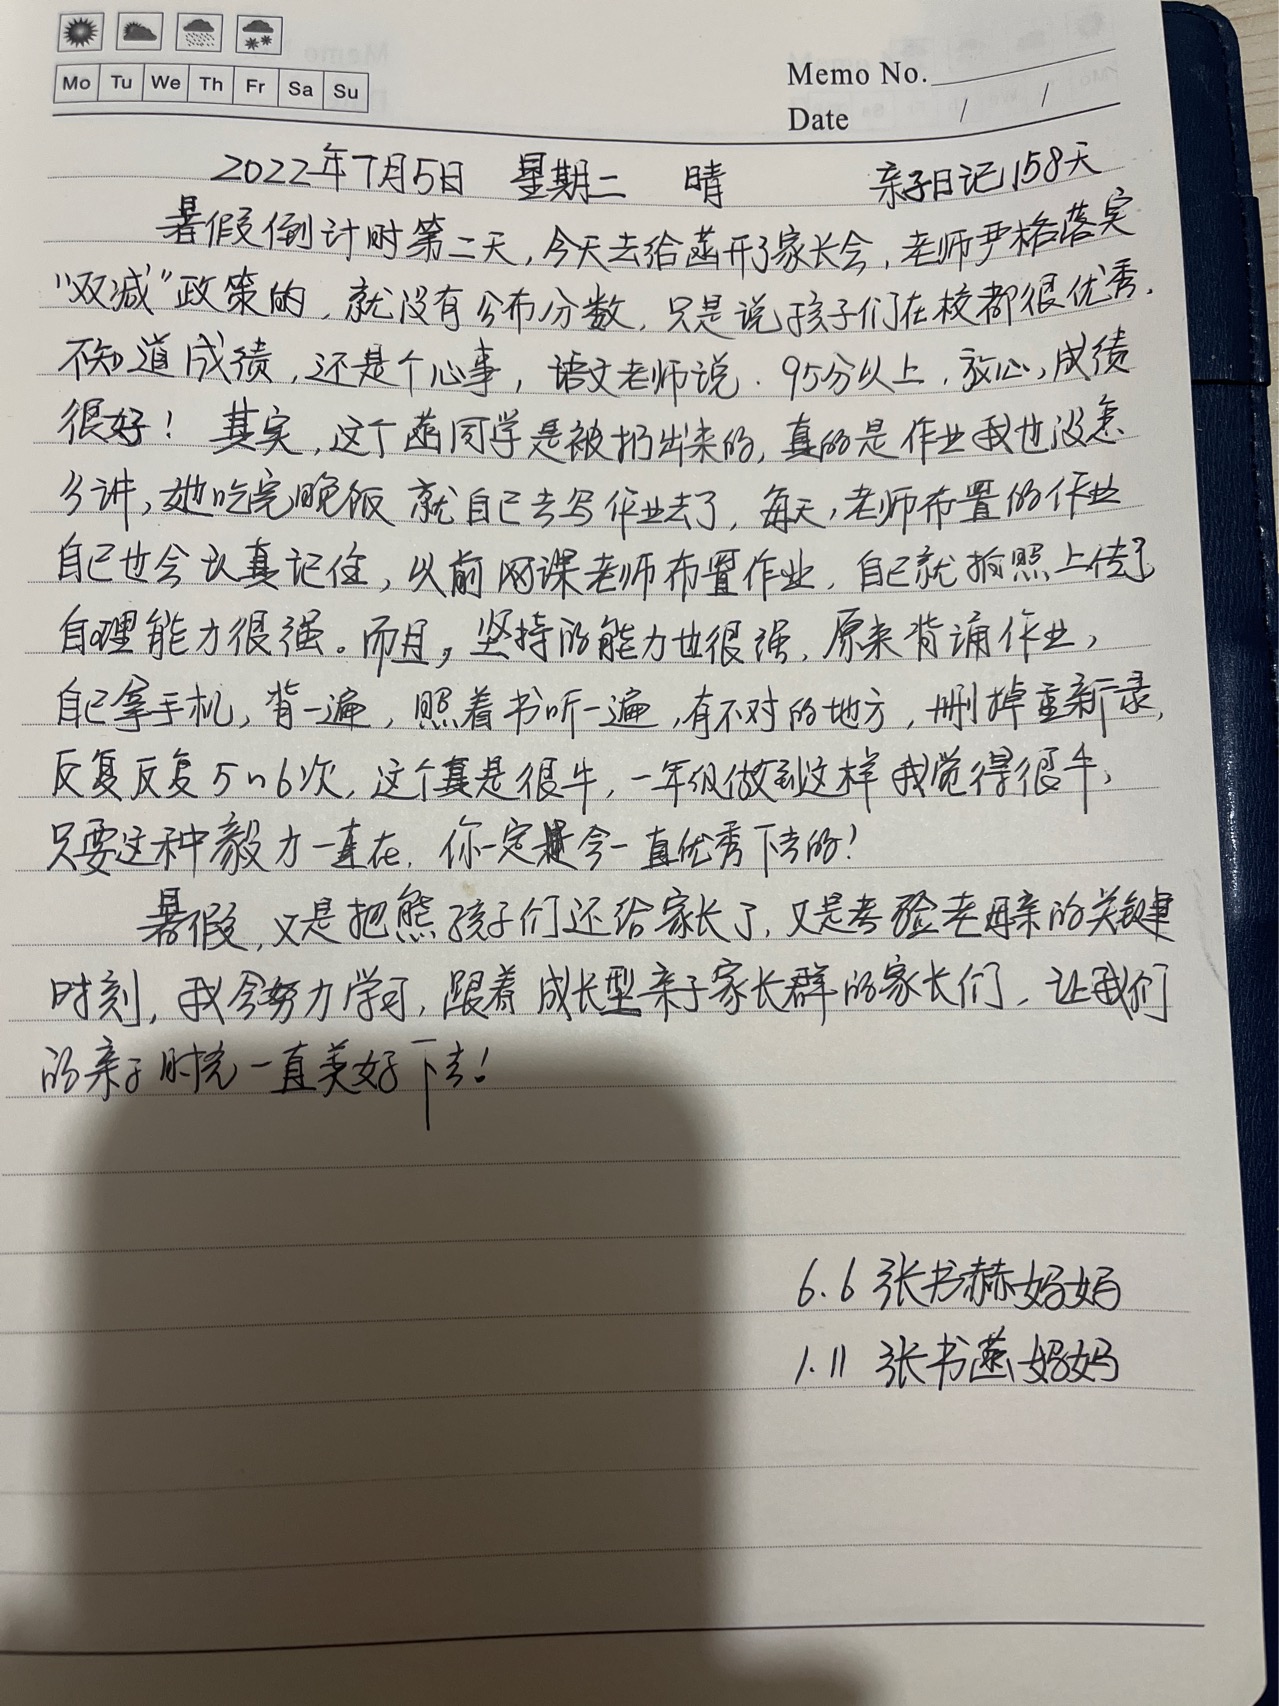 Mo Tu We Th Fr Sa Su
Memo No.
Date / /
2022年7月5日 星期二 晴 亲子日记158天
暑假倒计时第二天,今天去给菡开了家长会,老师严格落实
"双减"政策的,就没有公布分数,只是说孩子们在校都很优秀.
不知道成绩,还是个心事,语文老师说.95分以上,放心,成绩
很好!其实,这个菡同学是被扔出来的,真的是作业我也没怎
么讲,她吃完晚饭就自己去写作业去了,每天,老师布置的作业
自己也会认真记住,以前网课老师布置作业,自己就拍照上传了
自理能力很强。而且,坚持的能力也很强,原来背诵作业,
自己拿手机,背一遍,照着书听一遍,有不对的地方,删掉重新录,
反复反复5~6次,这个真是很牛,一年级做到这样我觉得很牛,
只要这种毅力一直在,你一定是会一直优秀下去的!
暑假,又是把熊孩子们还给家长了,又是考验老母亲的关键
时刻,我会努力学习,跟着成长型亲子家长群的家长们,让我们
的亲子时光一直美好下去!
6.6 张书赫妈妈
1.11 张书菡妈妈